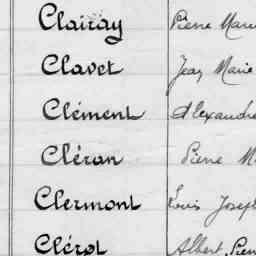 Clairay Pierre Marie
Clavet Jean Marie
Clément Alexandre
Cléran Pierre M
Clermont Louis Joseph
Clérot Albert Pierre